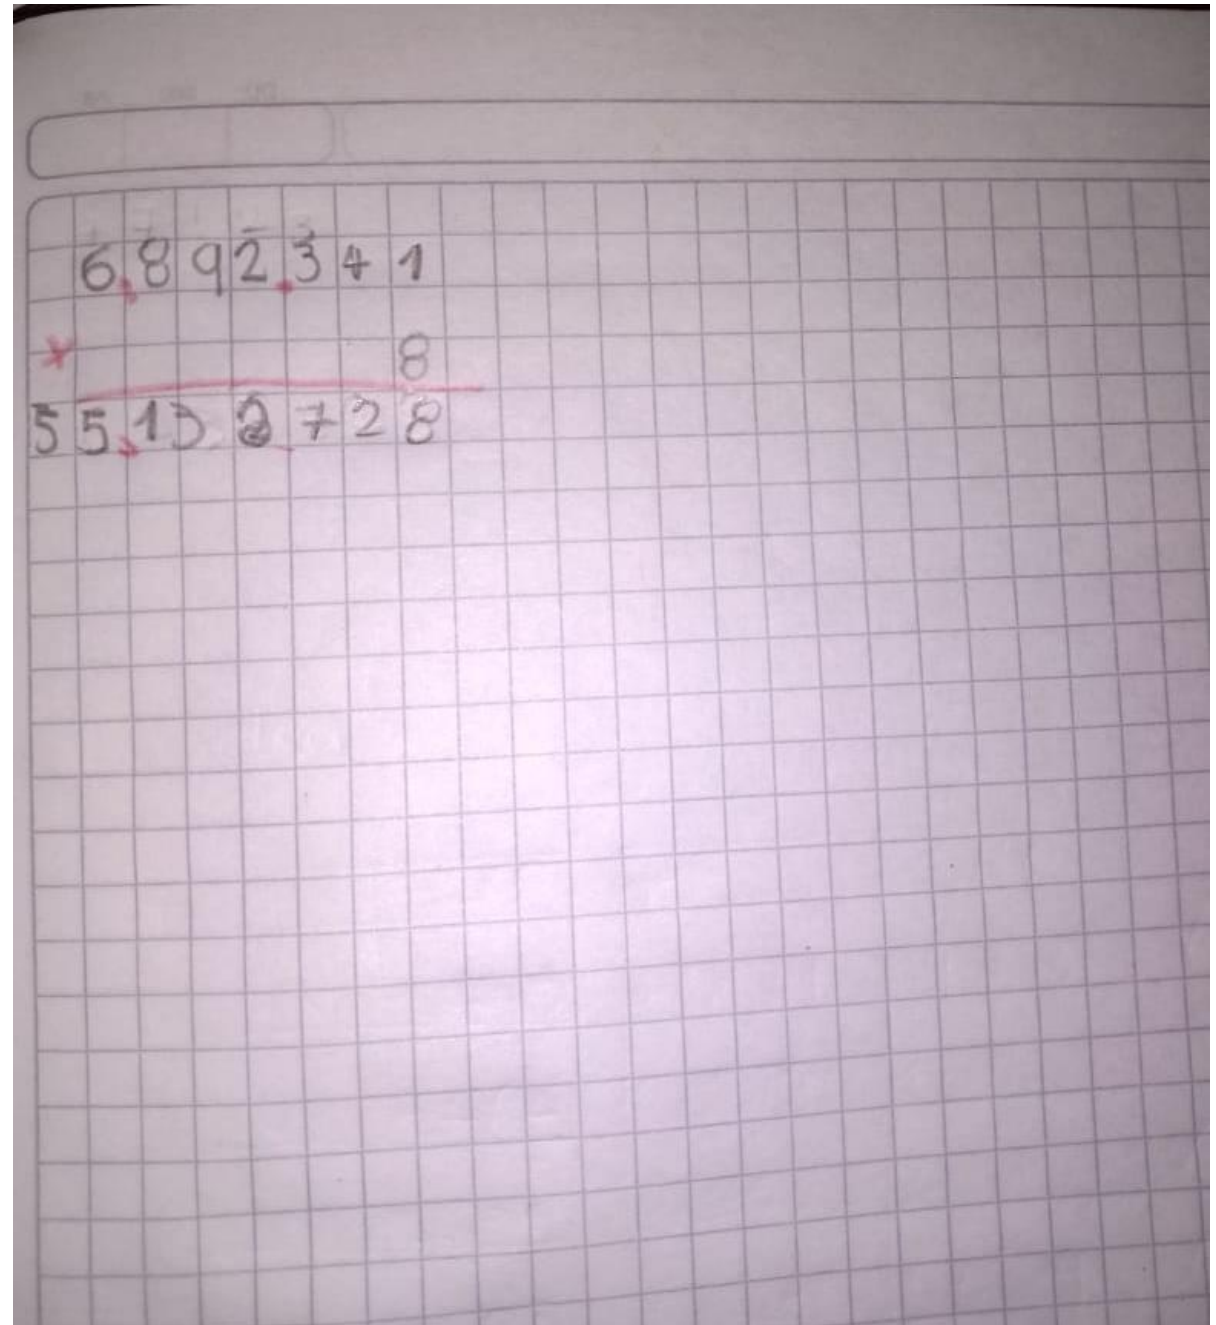 6.892.341
* 8
55.132728